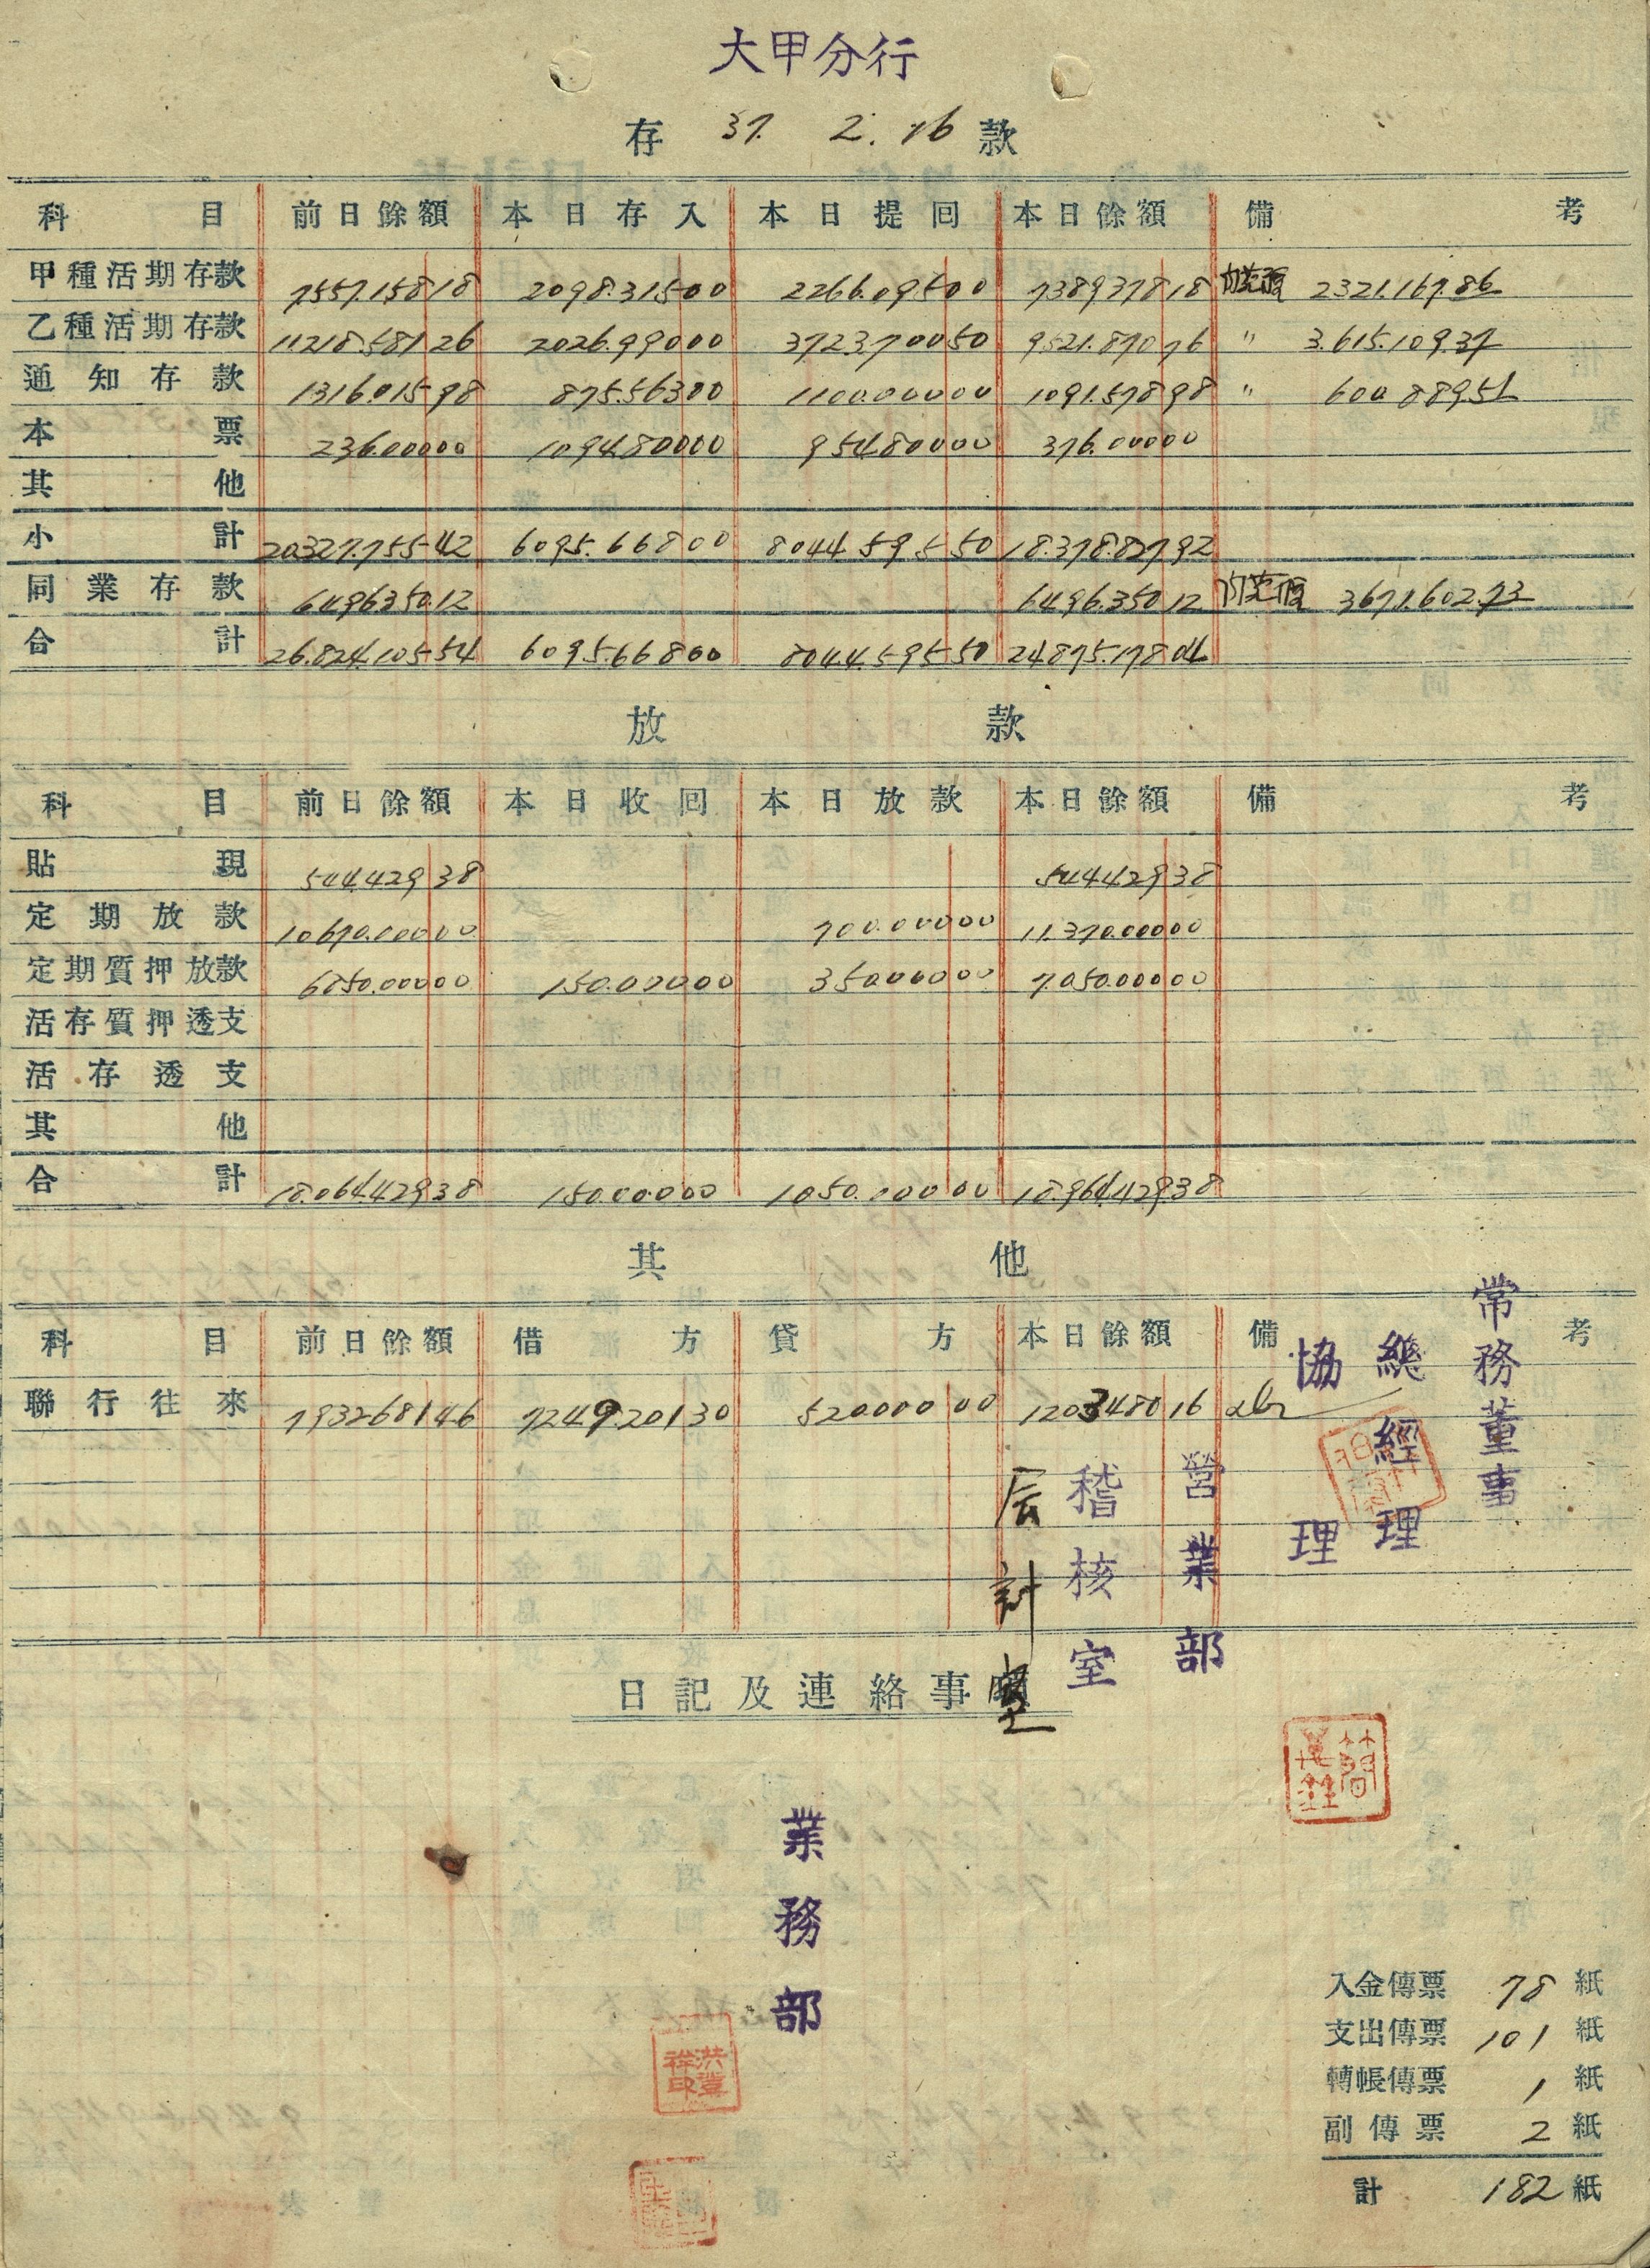 大甲分行
存 37. 2. 16 款
科目 前日餘額 本日存入 本日提回 本日餘額 備考
甲種活期存款 7557.158 18 2098.315 00 2266.095 00 7389378 18 2321.167.86
乙種活期存款 11218.581 26 2026.990 00 3723.700 50 9521.870 76 〃 3.615.109.37
通知存款 1316.015 98 875.563 00 1100.000 00 1091.578 98 〃 600.889.51
本票 236.000 00 1094.800 00 954.800 00 376.000 00
其他
小計 20.327.755 42 6095.668 00 8044.595 50 18.378.827 92
同業存款 6496.350.12 6496.350 12 3671.602.73
合計 26.824.105 54 6095.668 00 8044.595 50 24875.178 04
放款
科目 前日餘額 本日收回 本日放款 本日餘額 備考
貼現 544.429 38 544429 38
定期放款 10670.000 00 700.000 00 11.370.000 00
定期質押放款 6850.000 00 150.000 00 350.000 00 7.050.000 00
活存質押透支
活存透支
其他
合計 18.064.429 38 150.000 00 1050.000 00 18.964.429 38
其他
科目 前日餘額 借方 貸方 本日餘額 備考
聯行往來 7932681 46 7249201 30 520000 00 1203480 16
常務董事
總經理
協理
營業部
稽核室
會計室
日記及連絡事項
業務部
洪登祥印
入金傳票 78 紙
支出傳票 101 紙
轉帳傳票 1 紙
副傳票 2 紙
計 182 紙